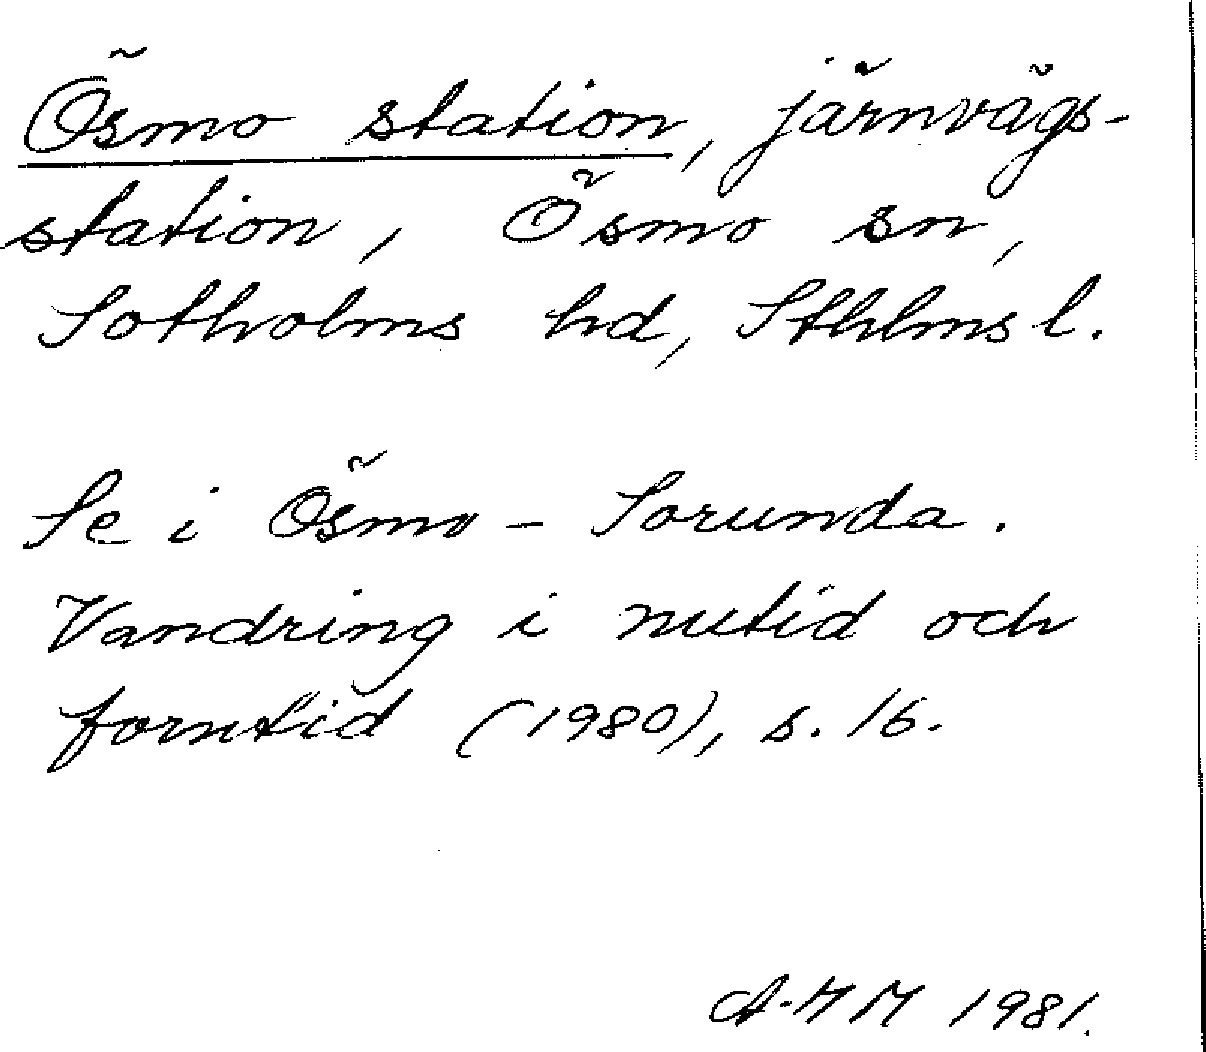 Ösmo station, järnvägs-
station, Ösmo sn,
Sotholms hd, Sthlms l.
Se i Ösmo - Sorunda.
Vandring i nutid och
forntid (1980), s. 16.
A-MM 1981.